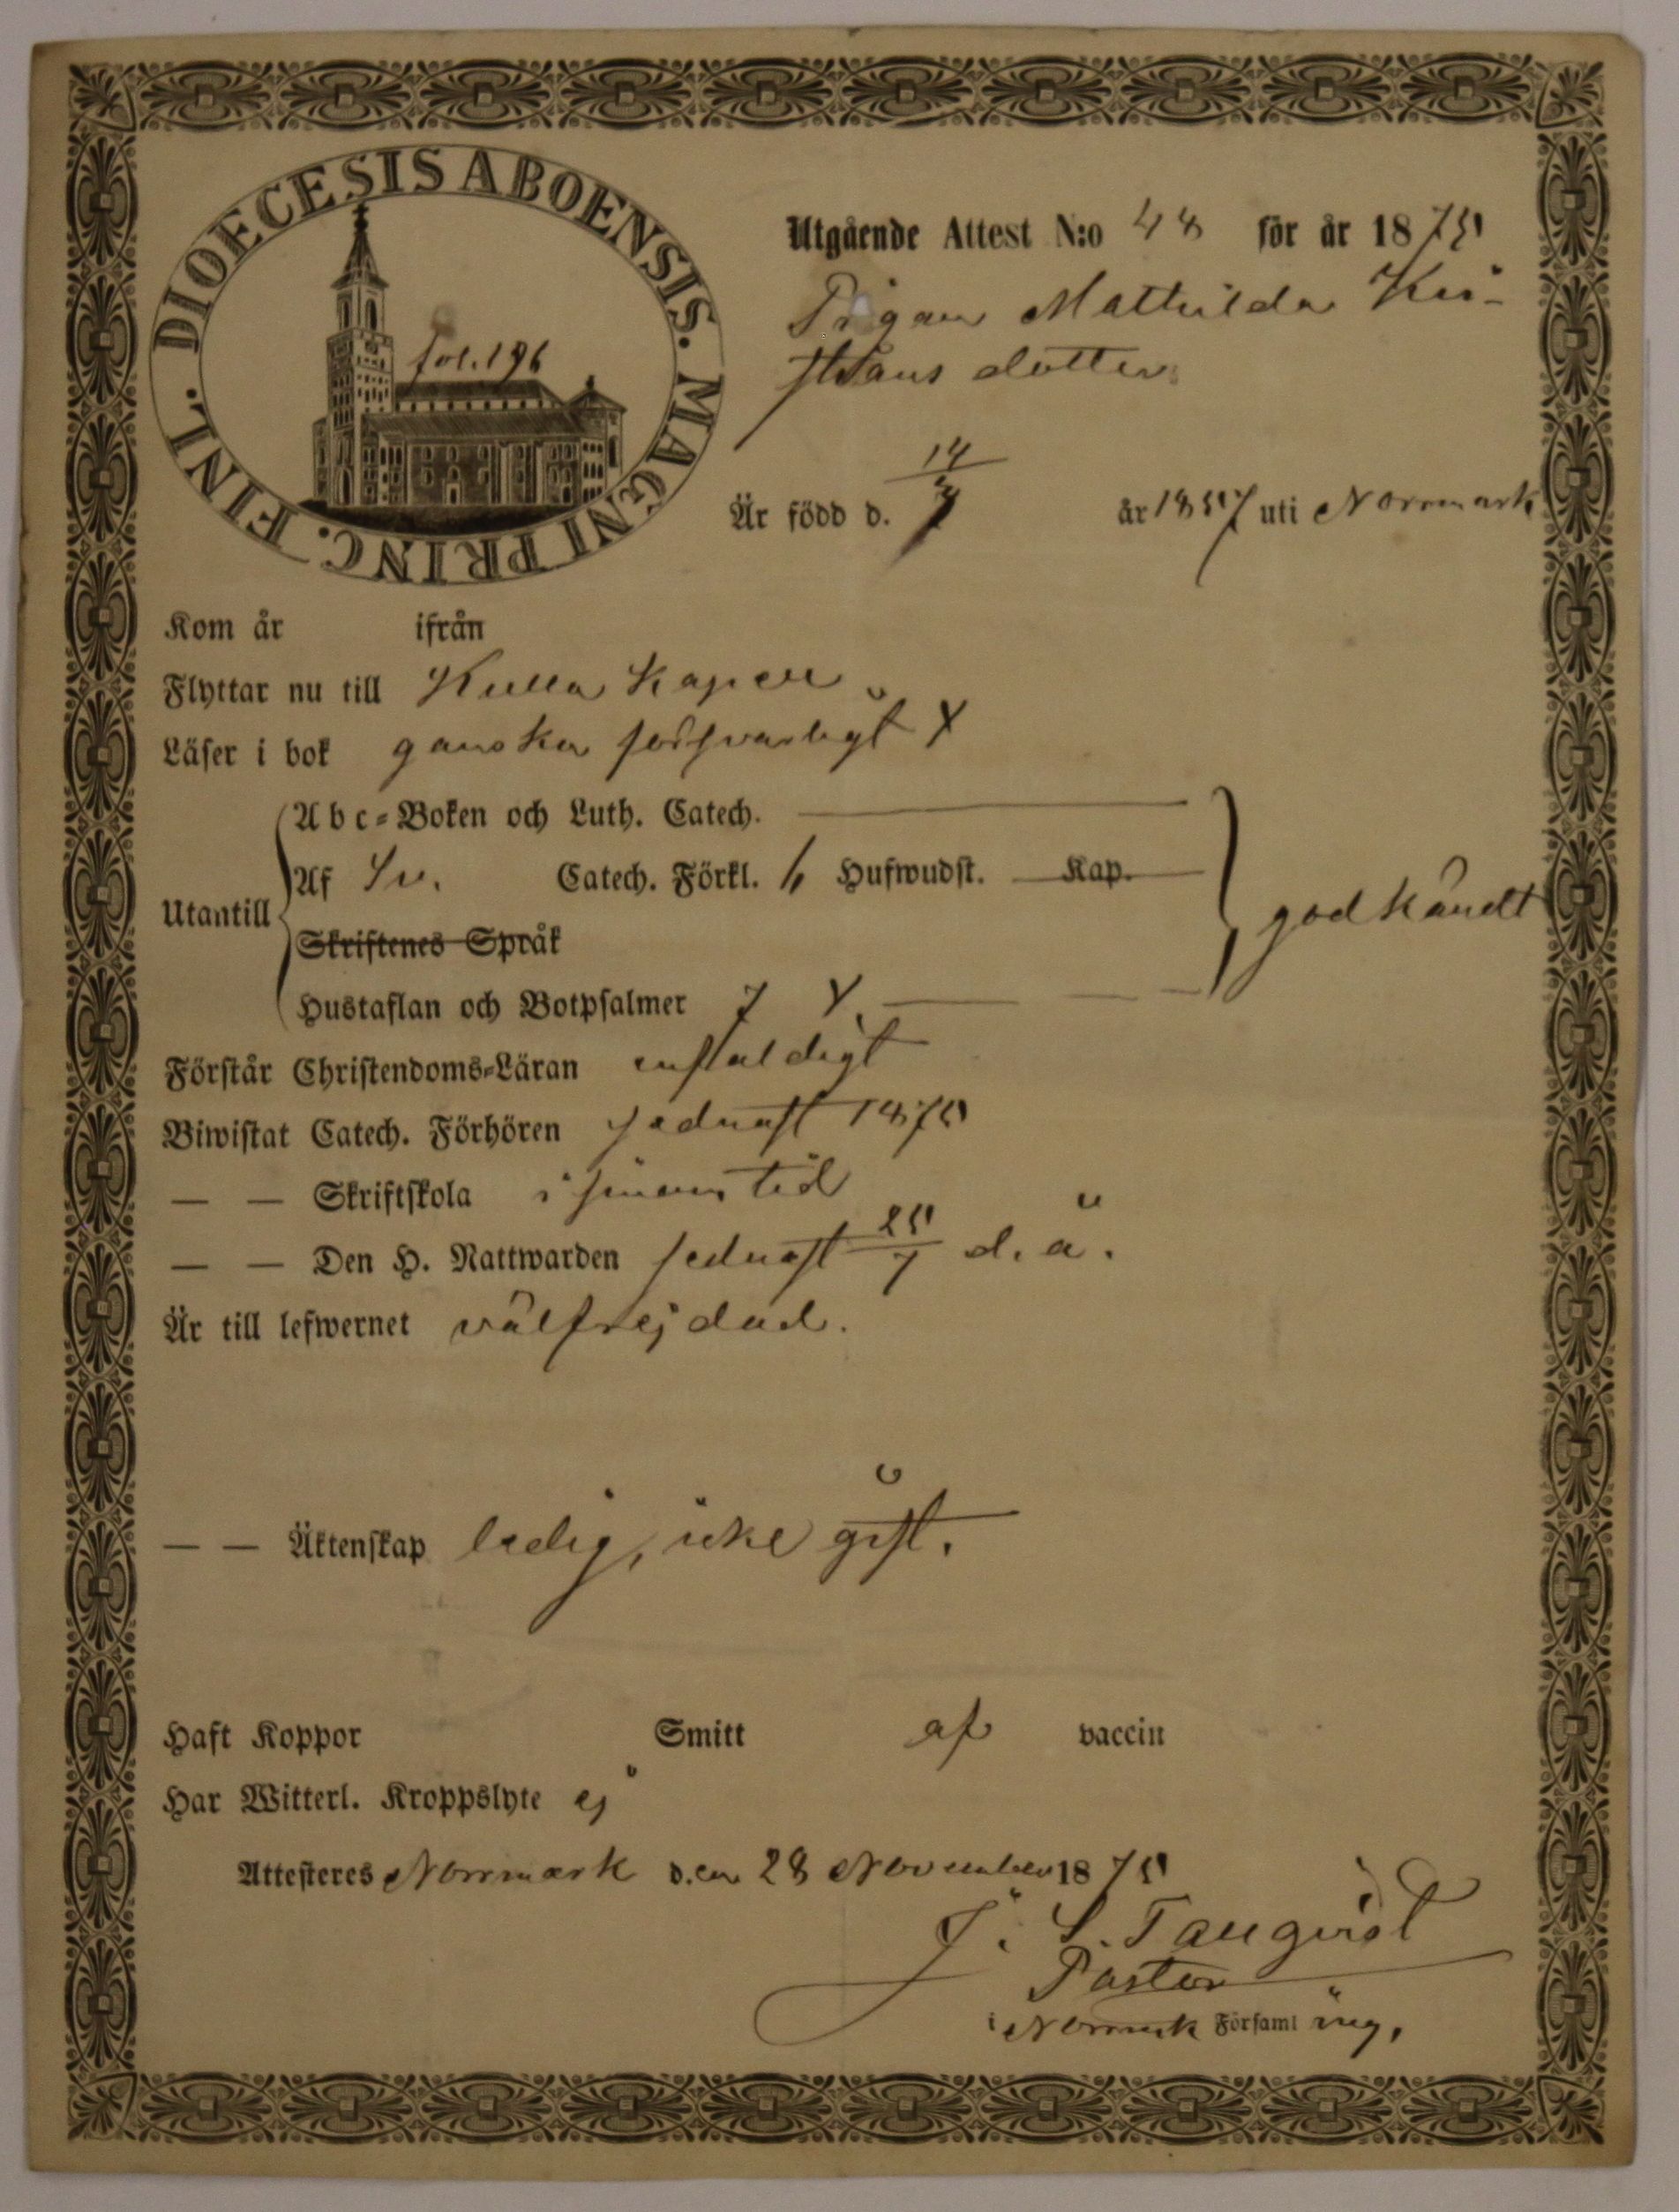 DIOECESIS ABOENSIS. MAGNI PRINC. FINL.
fol. 196
Utgående Attest N:o 48 för år 1875
Pigan Mathilda Kri-
stians dotter
Är född d. 14/7 år 1857 uti Norrmark
Kom år ifrån
Flyttar nu till Kulla Kapell
Läser i bok ganska försvarligt X
Utantill
Abc-Boken och Luth. Catech.
Af Sv. Catech. Förkl. 6 Hufwudst. Kap.
Skriftenes Språk
Hustaflan och Botpsalmer 7 Y.
godkändt
Förstår Christendoms-Läran enfaldigt
Biwistat Catech. Förhören sednast 1875
— — Skriftskola i sinom tid
— — Den H. Nattwarden sednast 25/7 d. å.
Är till lefwernet välfrejdad.
— — Äktenskap ledig, icke gift.
Haft Koppor Smitt af vaccin
Har Witterl. Kroppslyte ej
Attesteres Norrmark d.en 28 November 1875
J. S. Tallqvist
Pastor
i Norrmark Församling.